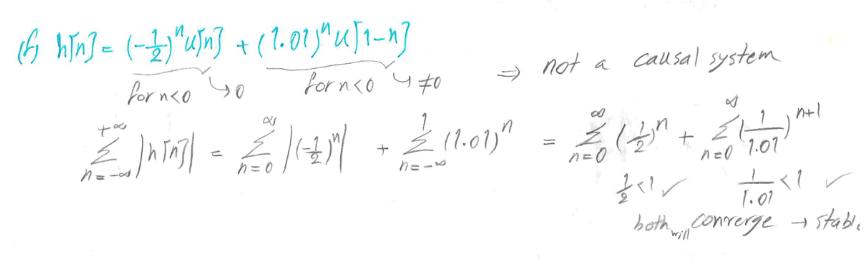 (f) h[n] = (-1/2)^n u[n] + (1.01)^n u[1-n]
for n<0 → 0 for n<0 → ≠0 ⇒ not a causal system
+∞ Σ n=-∞ |h[n]| = ∞ Σ n=0 |(-1/2)^n| + 1 Σ n=-∞ (1.01)^n = ∞ Σ n=0 (1/2)^n + ∞ Σ n=0 (1/1.01)^n+1
1/2 <1 ✓ 1/1.01 <1 ✓
both will converge → stable